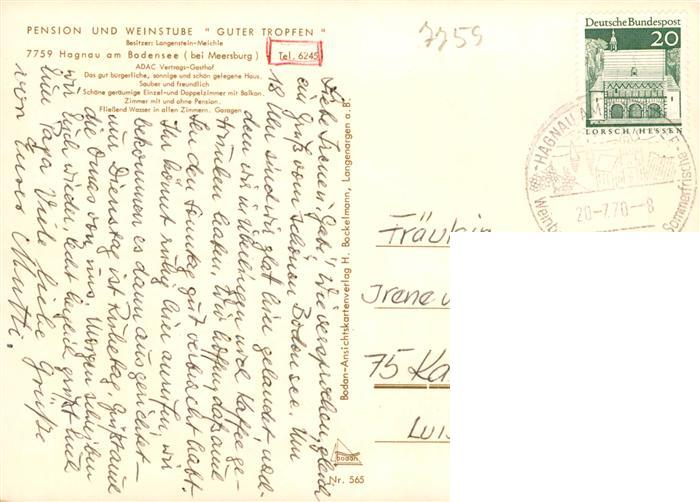 PENSION UND WEINSTUBE " GUTER TROPFEN "
Besitzer: Langenstein-Meichle
7759 Hagnau am Bodensee ( bei Meersburg ) Tel. 6245
ADAC Vertrags-Gasthof
Das gut bürgerliche, sonnige und schön gelegene Haus.
Sauber und freundlich
Schöne geräumige Einzel-und Doppelzimmer mit Balkon.
Zimmer mit und ohne Pension.
Fließend Wasser in allen Zimmern. Garagen
7759
Deutsche Bundespost
20
LORSCH/HESSEN
HAGNAU AM
20-7.70--8
Sommerfrische
Liebe Irene, Gabi! Wie versprochen, gleich
en Gruß vom schönen Bodensee. Um
18 Uhr sind wir gut hier gelandet, nach-
dem wir in Überlingen noch Kaffee ge-
trunken hatten. Wir hoffen, daß auch
Ihr den Sonntag gut verbracht habt.
Ihr könnt ruhig hier anrufen, wir
bekommen es dann ausgerichtet –
nur Dienstag ist Ruhetag. Grüßt auch
die Omas von uns. Morgen schreiben
wir Euch wieder, recht herzlich grüßt Euch
Eure Liebe Grüße
von Eurer Mutti.
Bodan-Ansichtskartenverlag H. Bockelmann, Langenargen a. B.
bodan
Nr. 565
Fräulein
Irene
75 Ka
Luis